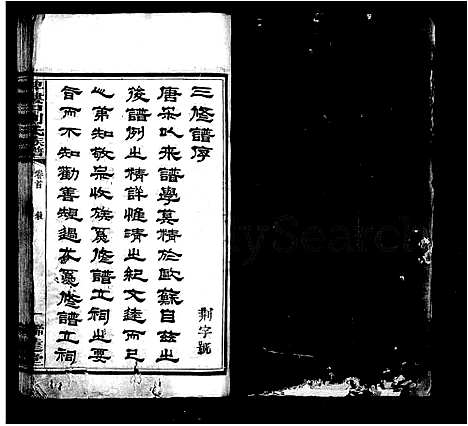 三修譜序
唐宋以來譜學莫精於歐蘇自茲出
後譜例出精詳惟清出紀文達而已
心第知敬宗收族爲修譜立祠出要
旨而不知勸善規過亦爲修譜立祠
荊字號
卷首
序